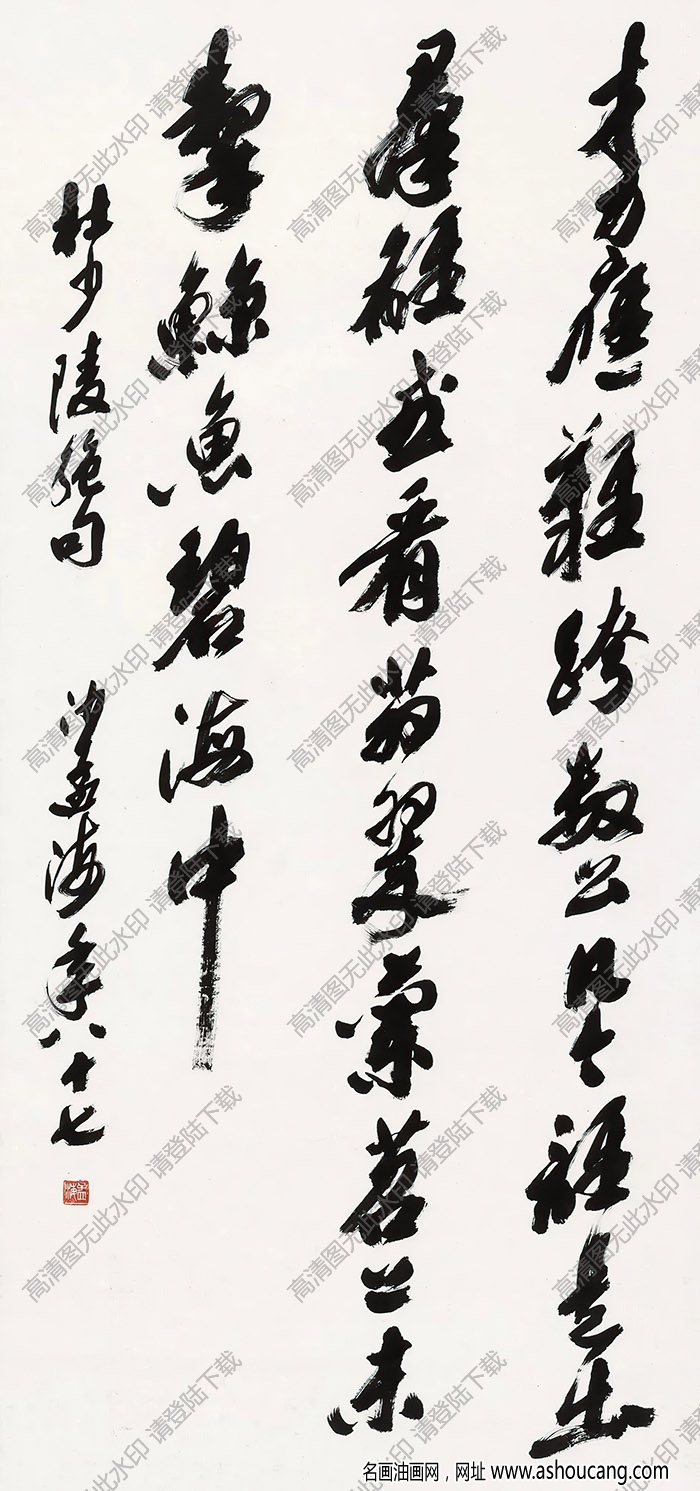 才力應難跨數公凡今誰是出
羣雄或看翡翠蘭苕上未
掣鯨魚碧海中
杜少陵絕句
沙孟海年八十七
高清图无此水印 请登陆下载
名画油画网，网址 www.ashoucang.com